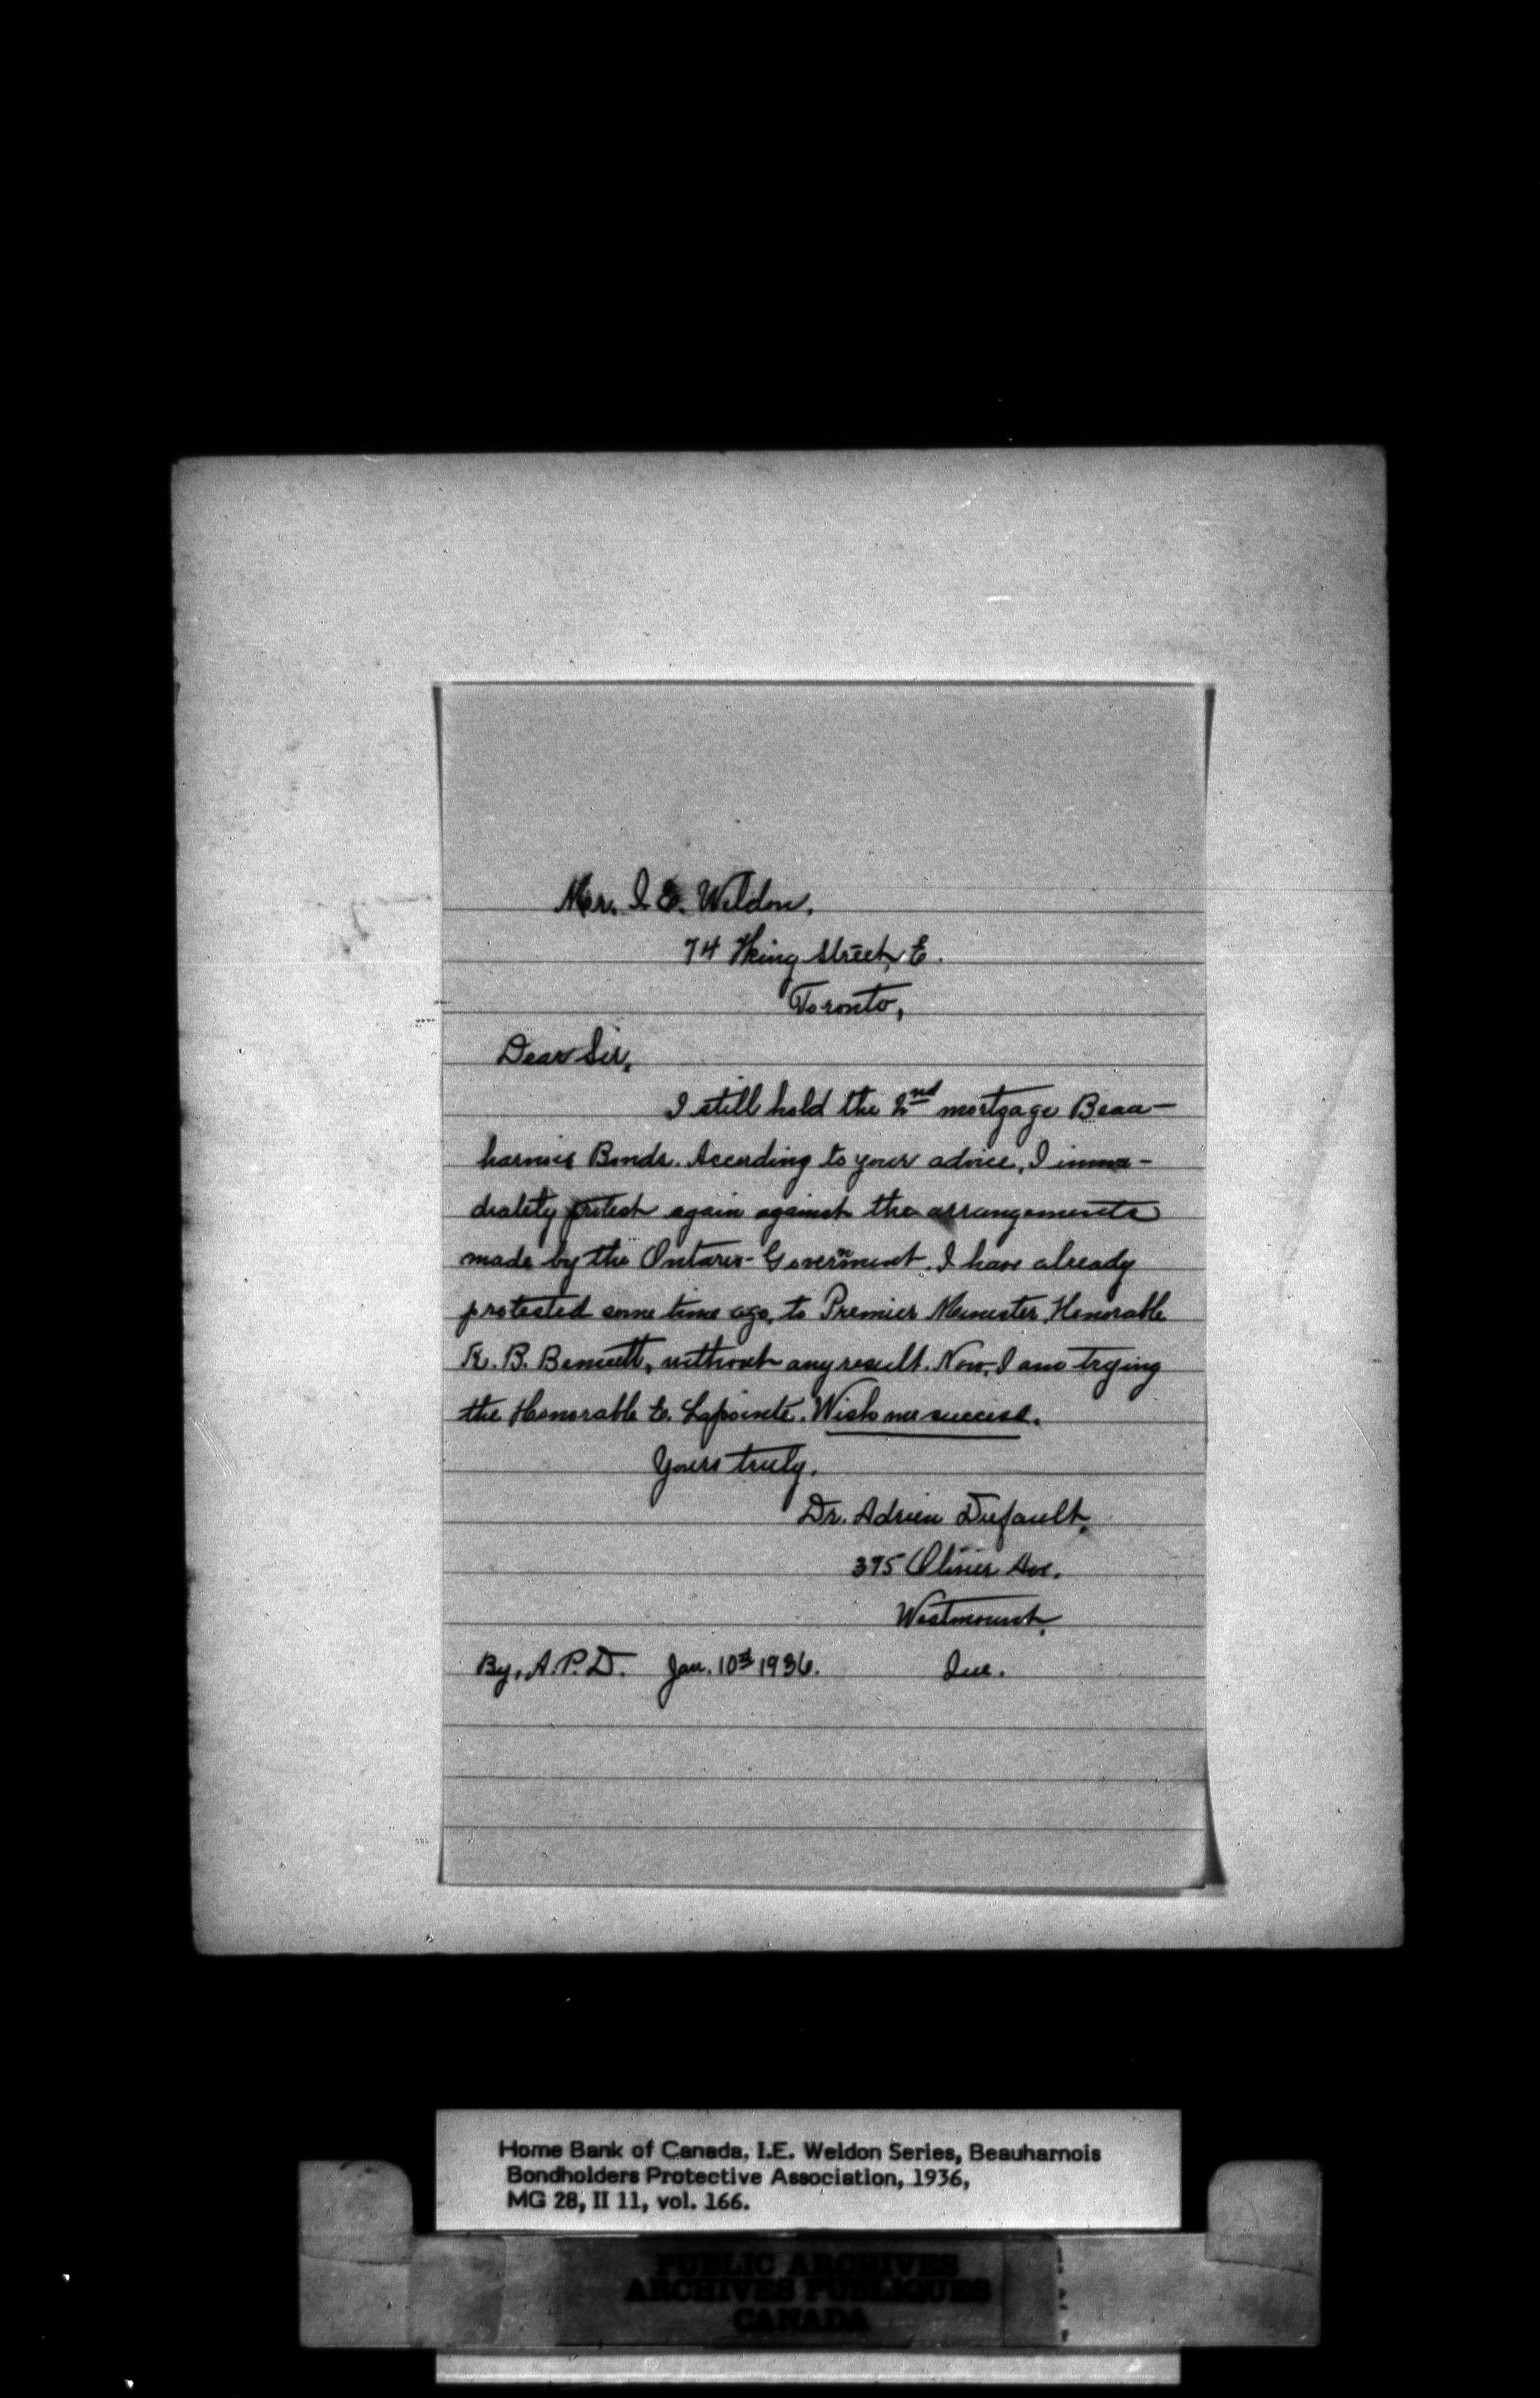 Mr. I. E. Weldon,
74 King Street, E.
Toronto,
Dear Sir,
I still hold the 2nd mortgage Beau-
harnois Bonds. According to your advice, I imme-
diately protest again against the arrangements
made by the Ontario-Government. I have already
protested some time ago, to Premier Minister, Honorable
R. B. Bennett, without any result. Now, I am trying
the Honorable E. Lapointe. Wish me success.
Yours truly,
Dr. Adrien Dufault,
395 Olivier Ave.
Westmount,
By, A. P. D. Jan. 10th 1936. Que.
Home Bank of Canada, I.E. Weldon Series, Beauharnois
Bondholders Protective Association, 1936,
MG 28, II 11, vol. 166.
PUBLIC ARCHIVES
ARCHIVES PUBLIQUES
CANADA